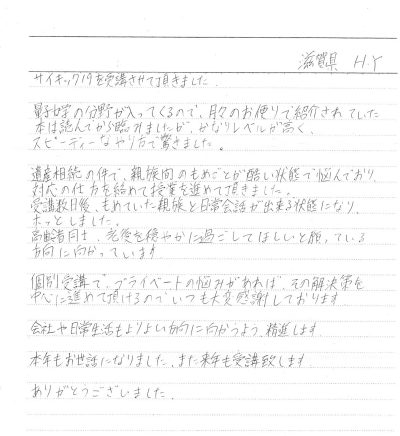 滋賀県 H.Y
サイキック19を受講させて頂きました。
量子力学の分野が入ってくるので、月々のお便りで紹介されていた
本は読んでから臨みましたが、かなりレベルが高く、
スピーディーなやり方で驚きました。
遺産相続の件で、親族間のもめごとが酷い状態で悩んでおり、
対応の仕方を絡めて授業を進めて頂きました。
受講数日後、もめていた親族と日常会話が出来る状態になり、
ホッとしました。
高齢者同士、老後を穏やかに過ごしてほしいと願っている
方向に向かっています
個別受講で、プライベートの悩みがあれば、その解決策を
中心に進めて頂けるのでいつも大変感謝しております
会社や日常生活もよりよい方向に向かうよう、精進します。
本年もお世話になりました、また来年も受講致します。
ありがとうございました。